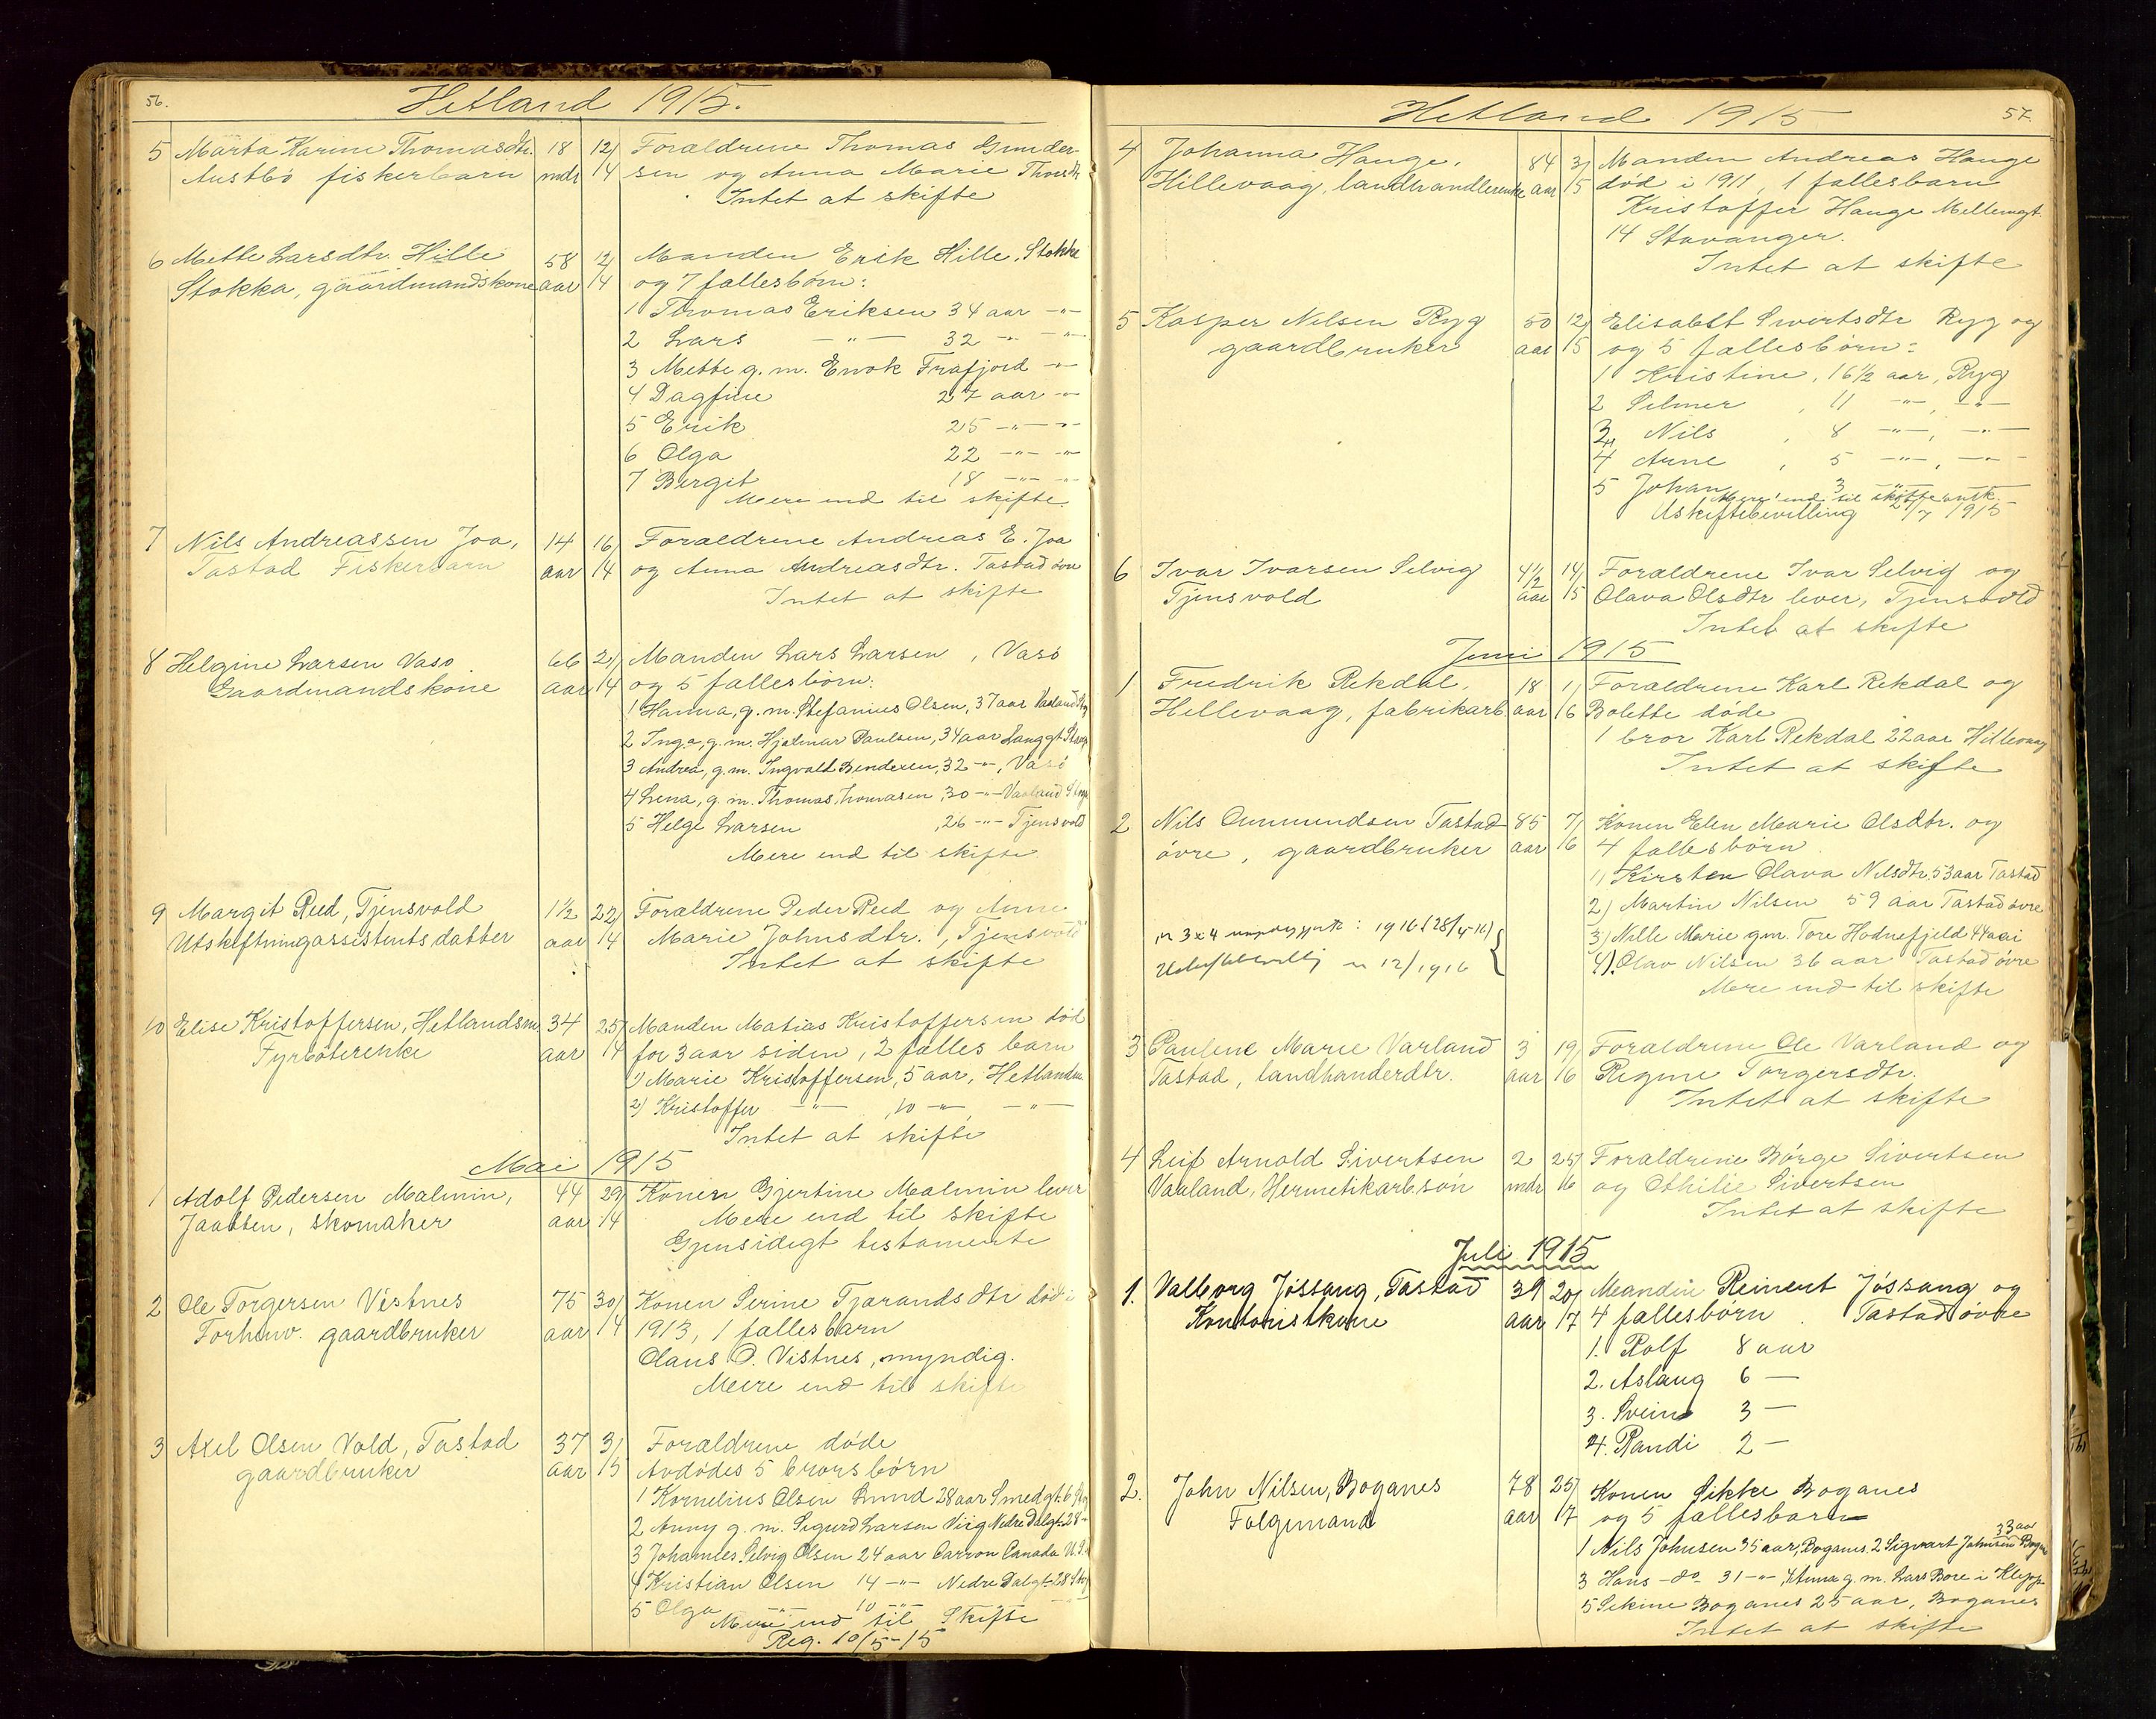 56.
Hetland 1915.
5 Marta Karine Thomasdtr. 18 12/ Forældrene Thomas Gunder-
Austbö fiskerbarn mdr 14 sen og Anna Marie
Intet at skifte
6 Mette Larsdtr. Hille 58 12/ Manden Erik Hille, Stokka
Stokka, gaardmandskone aar 14 og 7 fællesbörn:
1 Thomas Eriksen 34 aar -"-
2 Lars -"- 32 -"- -"-
3 Mette g. m. Enok Frafjord -"-
4 Dagfine 27 aar -"-
5 Erik 25 -"- -"-
6 Olga 22 -"- -"-
7 Bergit 18 -"- -"-
Mere end til skifte.
7 Nils Andreassen Joa, 14 16/ Forældrene Andreas E. Joa
Tastad Fiskerbarn aar 14 og Anna Andreasdtr. Tastad övre
Intet at skifte
8 Helgine Larsen Vasö. 66 21/ Manden Lars Larsen, Vasö
Gaardmandskone aar 14 og 5 fællesbörn:
1 Hanna, g. m. Stefanius Olsen, 37 aar Vaaland Stvg
2 Inga, g. m. Hjalmar Paulsen, 34 aar Langgt. Stvg
3 Andrea, g. m. Ingvald Bendexen, 32 -"-, Vasö
4 Lena, g. m. Thomas Thomasen, 30 -"- Vaaland Stvg
5 Helge Larsen ,26 -"- Tjensvold
Mere end til skifte
9 Margit Reed, Tjensvold 1½ 22/ Forældrene Peder Reed og Anne
Utskiftningassistents datter aar 14 Marie Johnsdtr., Tjensvold
Intet at skifte
10 Elise Kristoffersen, Hetlandsm 34 25/ Manden Matias Kristoffersen död
Fyrböterenke aar 14 for 3 aar siden, 2 fælles barn
1) Marie Kristoffersen, 5 aar, Hetlandsm
2) Kristoffer -"- ,10 -"-, -"-
Intet at skifte
Mai 1915
1 Adolf Pedersen Malmin, 44 29/ Konen Gjertine Malmin lever
Jaatten, skomaker aar 14 Mere end til skifte
Gjensidigt testamente
2 Ole Torgersen Vistnes 75 30/ Konen Serine Tjarandsdtr död i
Forhenv. gaardbruker aar 14 1913, 1 fællesbarn
Olaus O. Vistnes, myndig.
Mere end til skifte
3 Axel Olsen Vold, Tastad 37 3/ Forældrene döde
gaardbruker aar 15 Avdödes 5 brorsbörn
1 Kornelius Olsen Lund 28 aar Smedgt. 6 Stvg
2 Anny g. m. Sigurd Larsen Viig Nedre Dalgt. 28 -"-
3 Johannes Selvig Olsen 24 aar Carron Canada U.S.
4 Kristian Olsen 14 -"- Nedre Dalgt. 28 Stvg
5 Olga -"- 10 -"- -"-
Mere end til Skifte
Reg. 10/5-15
57.
Hetland 1915
4 Johanna Hauge, 84 3/ Manden Andreas Hauge
Hillevaag, landhandlerenke aar 15 död i 1911, 1 fællesbarn
Kristoffer Hauge Mellemgt.
14 Stavanger.
Intet at skifte
5 Kasper Nilsen Ryg 50 12/ Elisabet Sivertsdtr Ryg og
gaardbruker aar 15 og 5 fællesbörn:
1 Kristine, 16½ aar, Ryg
2 Selmer , 11 -"-, -"-
3 Nils , 8 -"-, -"-
4 Arne , 5 -"-, -"-
5 Johan 3 -"- -"-
Mere end til skifte
Uskiftebevilling 27/7 1915
6 Ivar Ivarsen Selvig 4½ 14/ Forældrene Ivar Selvig og
Tjensvold aar 15 Olava Olsdtr lever, Tjensvold
Intet at skifte
Juni 1915
1 Fredrik Rekdal, 18 1/ Forældrene Karl Rekdal og
Hillevaag, fabrikarb. aar 16 Bolette döde
1 bror Karl Rekdal 22 aar Hillevaag
Intet at skifte
2 Nils Ommundsen Tastad 85 7/ Konen Elen Marie Olsdtr. og
övre, gaardbruker aar 16 4 fællesbörn
1) Kirsten Olava Nilsdtr. 53 aar Tastad
2) Martin Nilsen 59 aar Tastad övre
3) Nille Marie gm. Tore Hodnefjeld 44 aar
4) Olav Nilsen 36 aar Tastad övre
Mere end til skifte
3 Paulene Marie Varland 3 19/ Forældrene Ole Varland og
Tastad, landhanderdtr. aar 16 Regine Torgersdtr.
Intet at skifte
4 Leif Arnold Sivertsen 2 25/ Forældrene Börge Sivertsen
Vaaland, Hermetikarb.sön mdr 16 og Othilie Sivertsen
Intet at skifte
Juli 1915
1. Valborg Jössang, Tastad 39 20/ Manden Reinert Jössang og
Kontoristkone aar 17 4 fællesbörn. Tastad övre
1. Rolf 8 aar
2. Aslaug 6 —
3. Svein 3 —
4. Randi 2 —
2. John Nilsen, Boganes 78 25/ Konen Sikke Boganes
Folgemand aar 17 og 5 fællesbarn
1 Nils Johnsen 35 aar, Boganes. 2 Sigvart Johnsen 33 aar Bogns
3 Hans -do- 31 -"-, 4 Anna g. m. Lars Bore i Klepp
5 Sekine Boganes 25 aar, Boganes
Intet at skifte